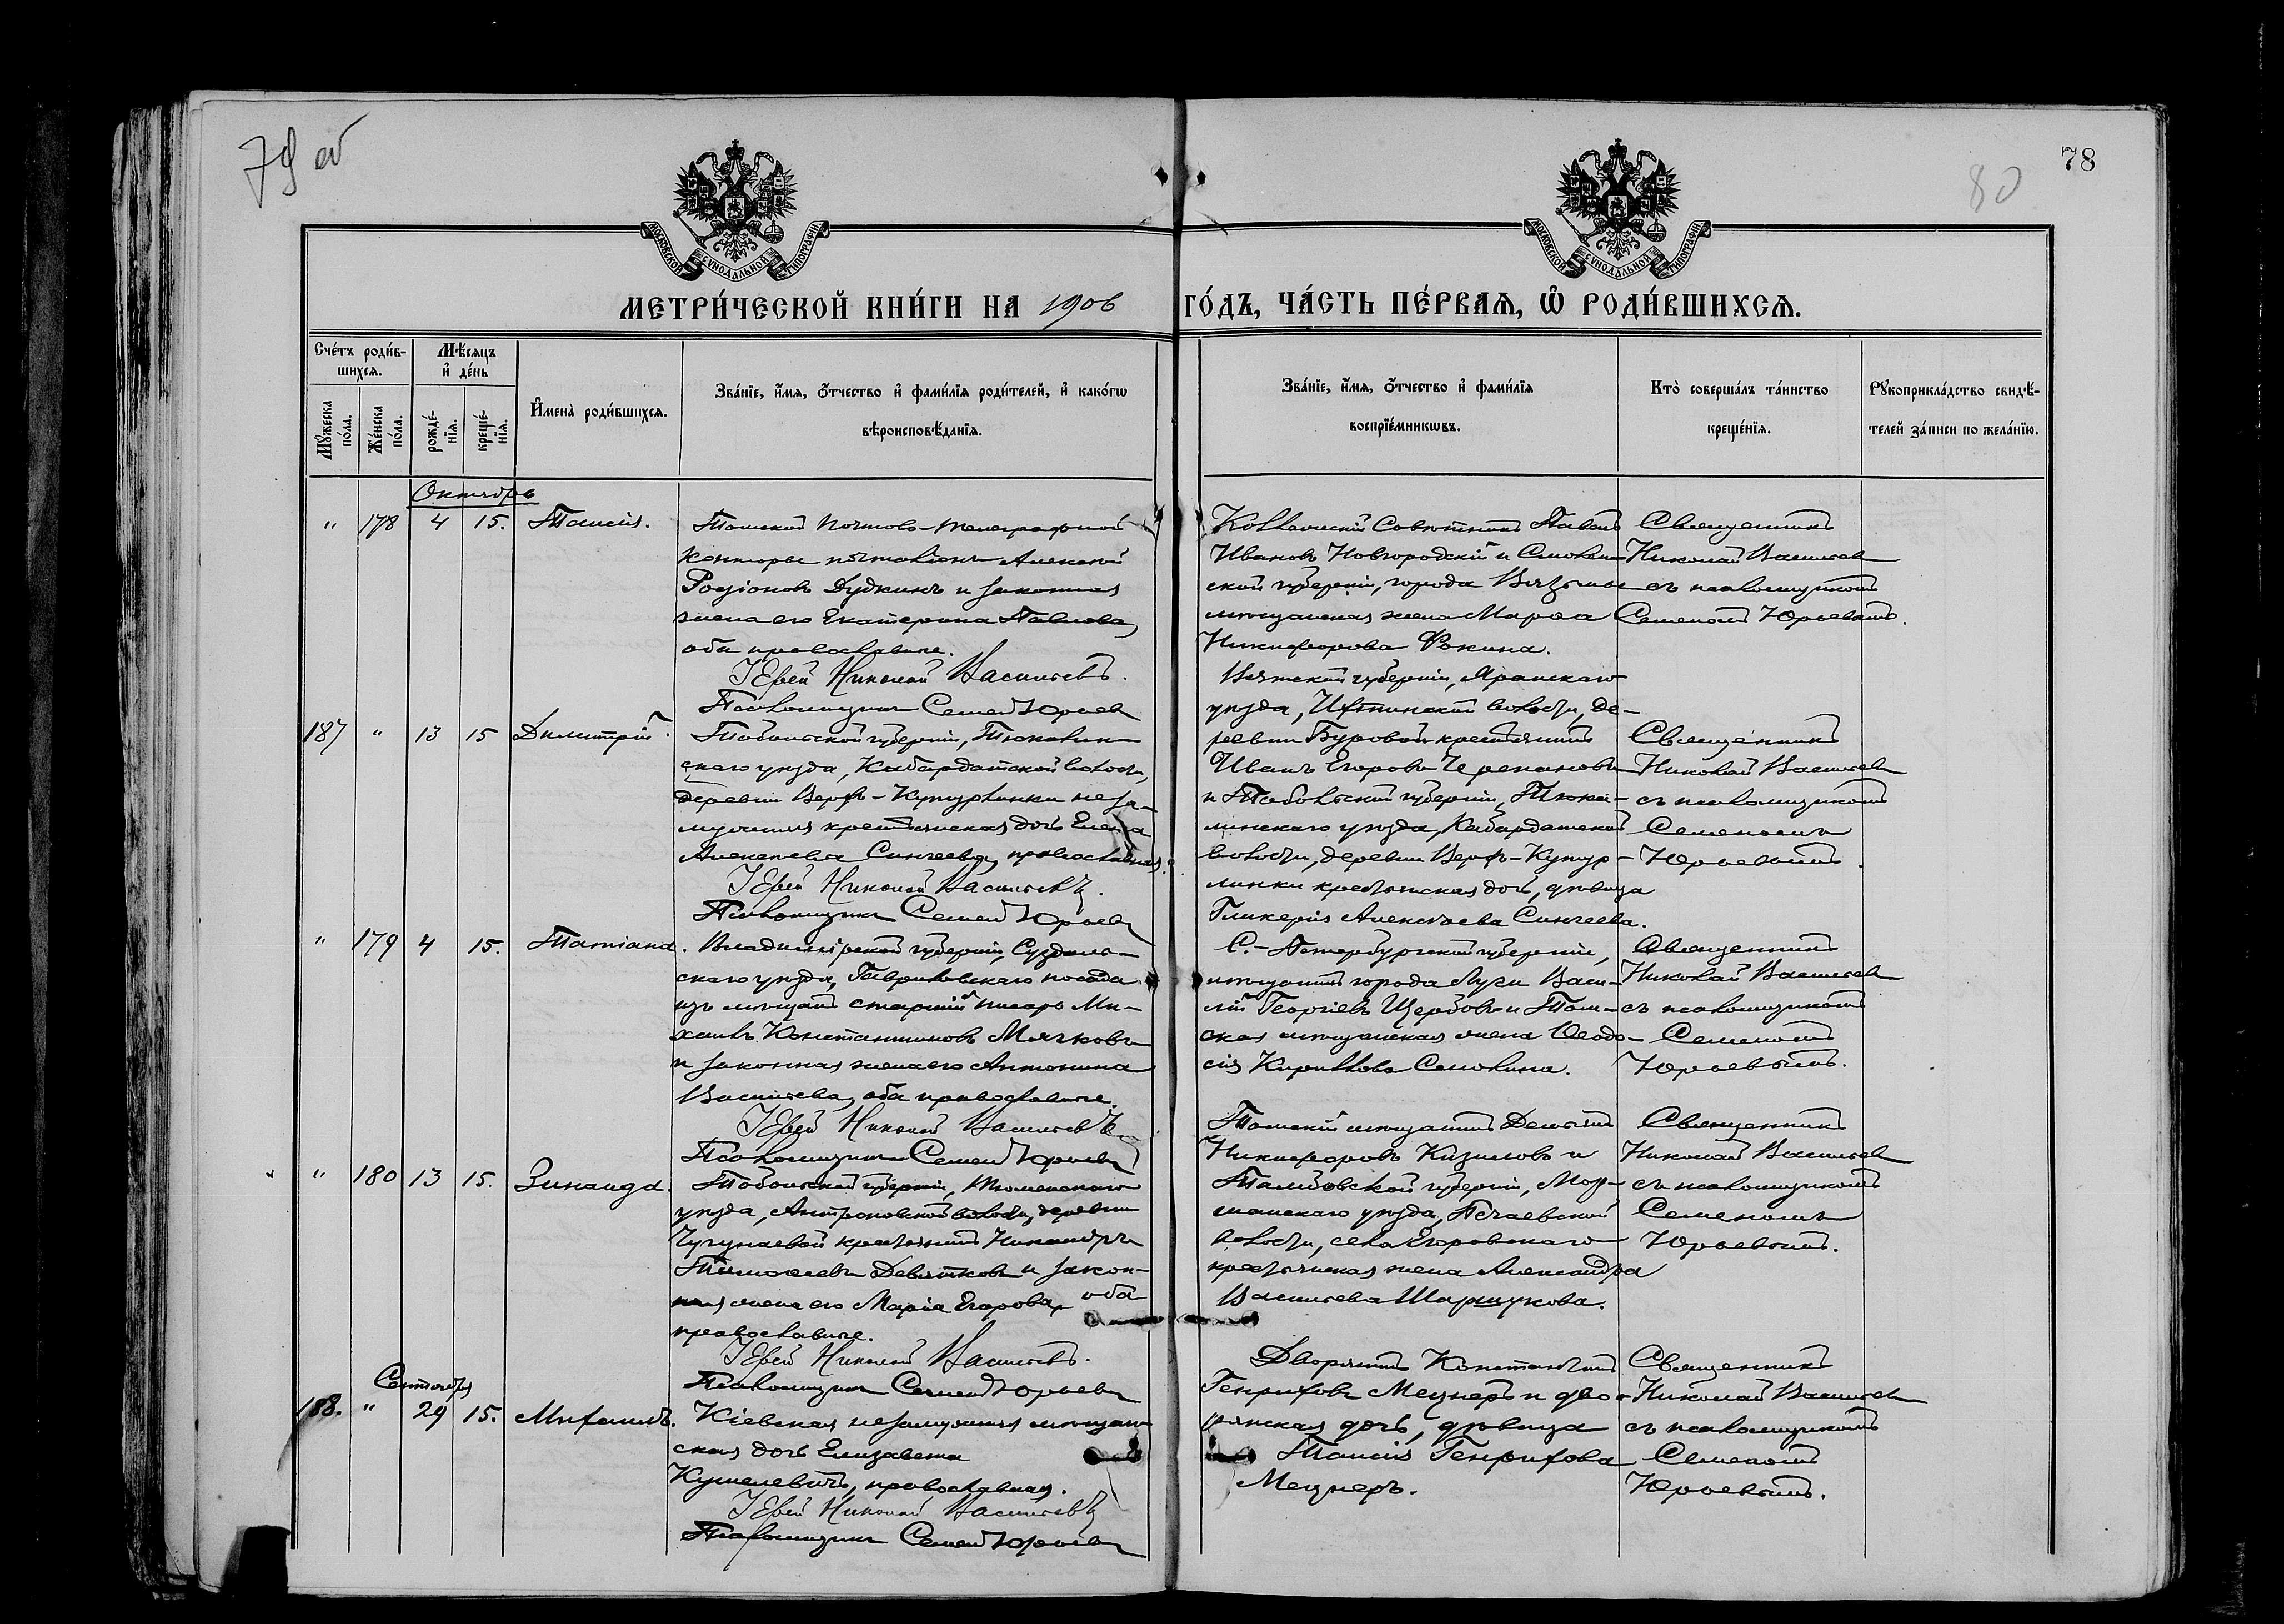 79 об
78
80
МОСКОВСКОЙ СѴНОДАЛЬНОЙ ТИПОГРАФІИ
МОСКОВСКОЙ СѴНОДАЛЬНОЙ ТИПОГРАФІИ
МЕТРИ́ЧЕСКОЙ КНИ́ГИ НА 1906 ГО́ДЪ, ЧА́СТЬ ПЕ́РВАѦ, Ѡ РОДИ́ВШИХСѦ.
Сче́тъ роди́в-
шихсѧ.
Мѣ́сяцъ
и҆ де́нь
Мꙋ́жеска по́ла.
Же́нска по́ла.
рожде́-
нїѧ.
креще́-
нїѧ.
И҆мена̀ роди́вшихсѧ.
Зва́нїе, и҆́мѧ, ѻ҆́тчество и҆ фами́лїѧ роди́телей, и҆ како́гѡ
вѣроисповѣ́данїѧ.
Зва́нїе, и҆́мѧ, ѻ҆́тчество и҆ фами́лїѧ
воспрїе́мникѡвъ.
Кто̀ соверша́лъ та́инство
креще́нїѧ.
Рꙋкоприкла́дство свидѣ́-
телей за́писи по жела́нїю.
Октябрь
" 178 4 15. Таисія.
Томской почтово-телеграфной
конторы почталіонъ Алексей
Родіоновъ Дудкинъ и законная
жена его Екатерина Павлова,
оба православные.
Іерей Николай Васильевъ.
Псаломщикъ Семен Юрьев
Коллежскій Советникъ Павелъ
Ивановъ Новгородскій и Смолен-
ской губерніи, города Вязьмы
мѣщанская жена Марѳа
Никифорова Фокина.
Священникъ
Николай Васильев
съ псаломщикомъ
Семеномъ Юрьевымъ.
187 " 13 15 Димитрій.
Тобольской губерніи, Тюкалин-
скаго уѣзда, Кабардатской волости,
деревни Верхъ-Кутурлинки неза-
мужняя крестьянская дочь Елена
Алексѣева Синчеева, православная.
Іерей Николай Васильевъ.
Псаломщикъ Семен Юрьев
Вятской губерніи, Яранскаго
уѣзда, волости, де-
ревни Буровой крестьянинъ
Иванъ Егоровъ Черепановъ
и Тобольской губерніи, Тюка-
линскаго уѣзда, Кабардатской
волости, деревни Верхъ-Кутур-
линки крестьянская дочь, дѣвица
Гликерія Алексѣева Синчеева.
Священникъ
Николай Васильев
съ псаломщикомъ
Семеномъ
Юрьевымъ.
" 179 4 15. Татіана.
Владимірской губерніи, Суздаль-
скаго уѣзда, Гавриловскаго посада
изъ мѣщанъ старшій писарь Ми-
хаилъ Константиновъ Мячковъ
и законная жена его Антонина
Васильева, оба православные.
Іерей Николай Васильевъ
Псаломщикъ Семен Юрьев
С.-Петербургской губерніи,
мѣщанинъ города Луги Васи-
лій Георгіевъ Щербовъ и Том-
ская мѣщанская жена Ѳеодо-
сія Кириллова Самохина.
Священникъ
Николай Васильев
съ псаломщикомъ
Семеномъ
Юрьевымъ.
" 180 13 15. Зинаида.
Тобольской губерніи, Тюменскаго
уѣзда, Антроповской волости, деревни
Чугунаевой крестьянинъ Никандръ
Тимоѳеевъ Девятковъ и закон-
ная жена его Марія Егорова, оба
православные.
Іерей Николай Васильевъ.
Псаломщикъ Семен Юрьевъ
Томскій мѣщанинъ
Никифоровъ Кизиловъ и
Тамбовской губерніи, Мор-
шанскаго уѣзда, Печаевской
волости, села Егоровскаго
крестьянская жена Александра
Васильева Шаршукова.
Священникъ
Николай Васильев
съ псаломщикомъ
Семеномъ
Юрьевымъ.
Сентябрь
188. " 29 15. Михаилъ.
Кіевская незамужняя мѣщан-
ская дочь Елизавета
Кушелевичъ, православная.
Іерей Николай Васильевъ
Псаломщикъ Семен Юрьевъ
Дворянинъ Константинъ
Генриховъ Мецнеръ и дво-
рянская дочь, дѣвица
Таисія Генрихова
Мецнеръ.
Священникъ
Николай Васильев
съ псаломщикомъ
Семеномъ
Юрьевымъ.